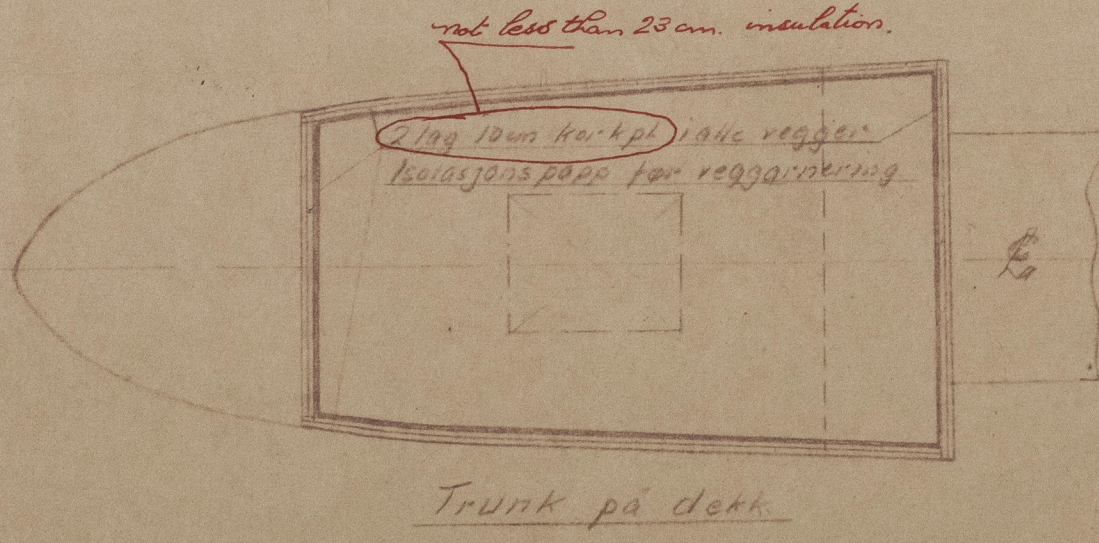 not less than 23 cm. insulation.
2 lag 10cm korkpl i alle vegger
Isolasjonspapp før veggarnering
℄
Trunk på dekk